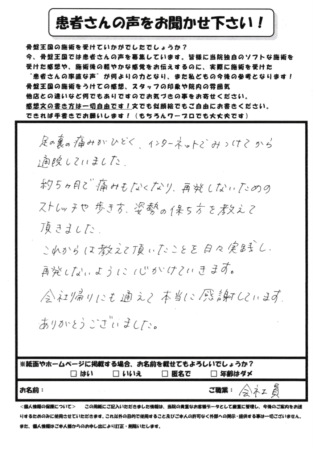 患者さんの声をお聞かせ下さい！
骨盤王国の施術を受けていかがでしたでしょうか？
今、骨盤王国では患者さんの声を募集しています。皆様に当院独自のソフトな施術を
受けた感想や、施術後の軽やかな感覚をお伝えするのに、実際に施術を受けた
“患者さんの率直な声”が何よりの力となり、また私どもの今後の参考となります！
骨盤王国の施術をうけての感想、スタッフの印象や院内の雰囲気
他店との違いなど何でもありですのでお気づきの事をお寄せください。
感想文の書き方は一切自由です！文でも似顔絵でもご自由にお書きください。
できれば手書きでお願いします！（もちろんワープロでも大丈夫です）
足の裏の痛みがひどく、インターネットでみつけてから
通院していました。
約5ヵ月で痛みもなくなり、再発しないための
ストレッチや歩き方、姿勢の保ち方を教えて
頂きました。
これからは教えて頂いたことを日々実践し、
再発しないように心がけていきます。
会社帰りにも通えて本当に感謝しています。
ありがとうございました。
※紙面やホームページに掲載する場合、お名前を載せてもよろしいでしょうか？
□ はい □ いいえ □ 匿名で □ 年齢はダメ
お名前： ご職業： 会社員